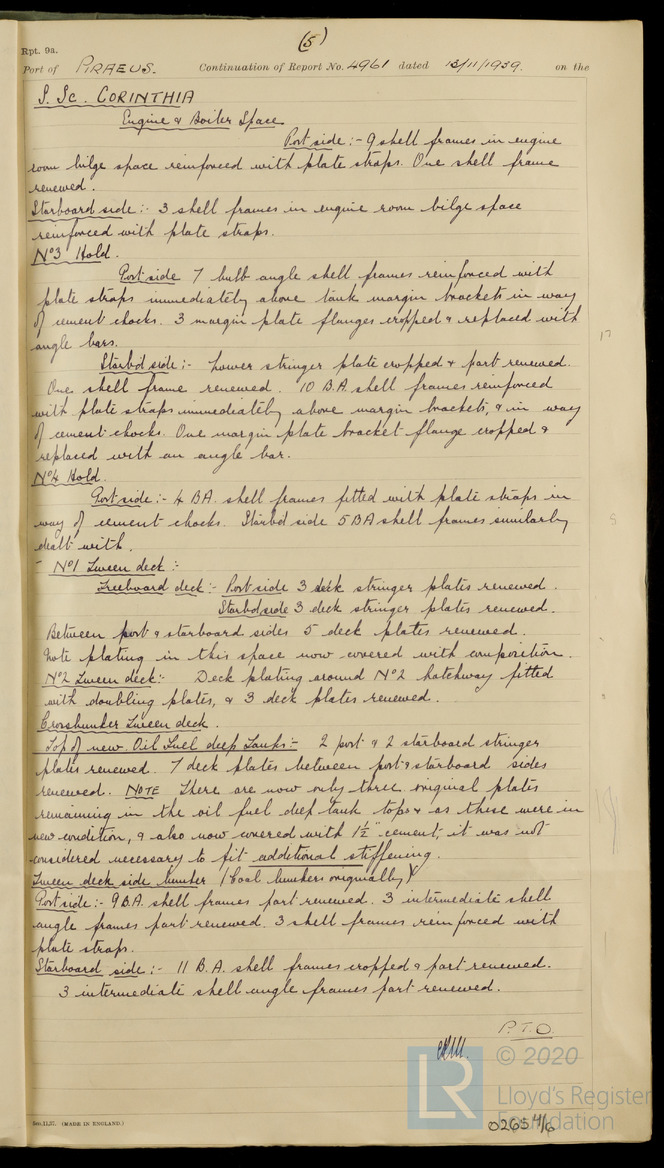 (5)
Rpt. 9a.
Port of PIRAEUS. Continuation of Report No. 4961 dated 13/11/1939. on the
S. Sc. CORINTHIA
Engine & Boiler Space
Port side :- 9 shell frames in engine
room bilge space reinforced with plate straps. One shell frame
renewed.
Starboard side :- 3 shell frames in engine room bilge space
reinforced with plate straps.
No3 Hold.
Port side 7 bulb angle shell frames reinforced with
plate straps immediately above tank margin brackets in way
of cement chocks. 3 margin plate flanges cropped & replaced with
angle bars.
Starbd side :- Lower stringer plate cropped & part renewed.
One shell frame renewed. 10 B.A. shell frames reinforced
with plate straps immediately above margin brackets, & in way
of cement chocks. One margin plate bracket flange cropped &
replaced with an angle bar.
No4 Hold.
Port side :- 4 BA. shell frames fitted with plate straps in
way of cement chocks. Starbd side 5 BA shell frames similarly
dealt with.
- No1 Tween deck :-
Freeboard deck :- Port side 3 deck stringer plates renewed.
Starbd side 3 deck stringer plates renewed.
Between port & starboard sides 5 deck plates renewed.
Note plating in this space now covered with composition.
No2 Tween deck :- Deck plating around No2 hatchway fitted
with doubling plates, & 3 deck plates renewed.
Crossbunker Tween deck.
Top of new Oil Fuel deep Tanks :- 2 port & 2 starboard stringer
plates renewed. 7 deck plates between port & starboard sides
renewed. NOTE There are now only three original plates
remaining in the oil fuel deep tank tops & as these were in
new condition, & also now covered with 1½" cement, it was not
considered necessary to fit additional stiffening.
Tween deck side bunker (Coal bunkers originally)
Port side :- 9 B.A. shell frames part renewed. 3 intermediate shell
angle frames part renewed. 3 shell frames reinforced with
plate straps.
Starboard side :- 11 B.A. shell frames cropped & part renewed.
3 intermediate shell angle frames part renewed.
P.T.O.
LR © 2020
Lloyd's Register
Foundation
(MADE IN ENGLAND.)
0265 4/6